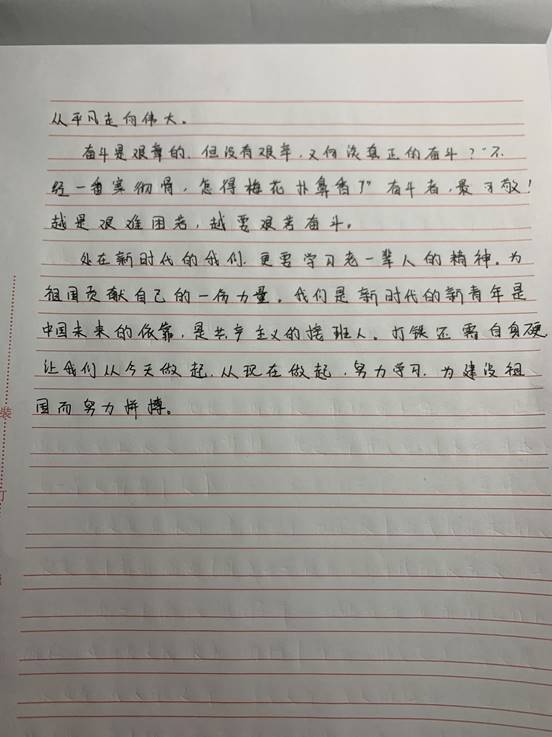 从平凡走向伟大。
奋斗是艰辛的，但没有艰辛，又何谈真正的奋斗？"不
经一番寒彻骨，怎得梅花扑鼻香？"奋斗者，最可敬！
越是艰难困苦，越要艰苦奋斗。
处在新时代的我们，更要学习老一辈人的精神。为
祖国贡献自己的一份力量。我们是新时代的新青年是
中国未来的依靠，是共产主义的接班人。打铁还需自身硬
让我们从今天做起，从现在做起，努力学习，为建设祖
国而努力拼搏。
装
订